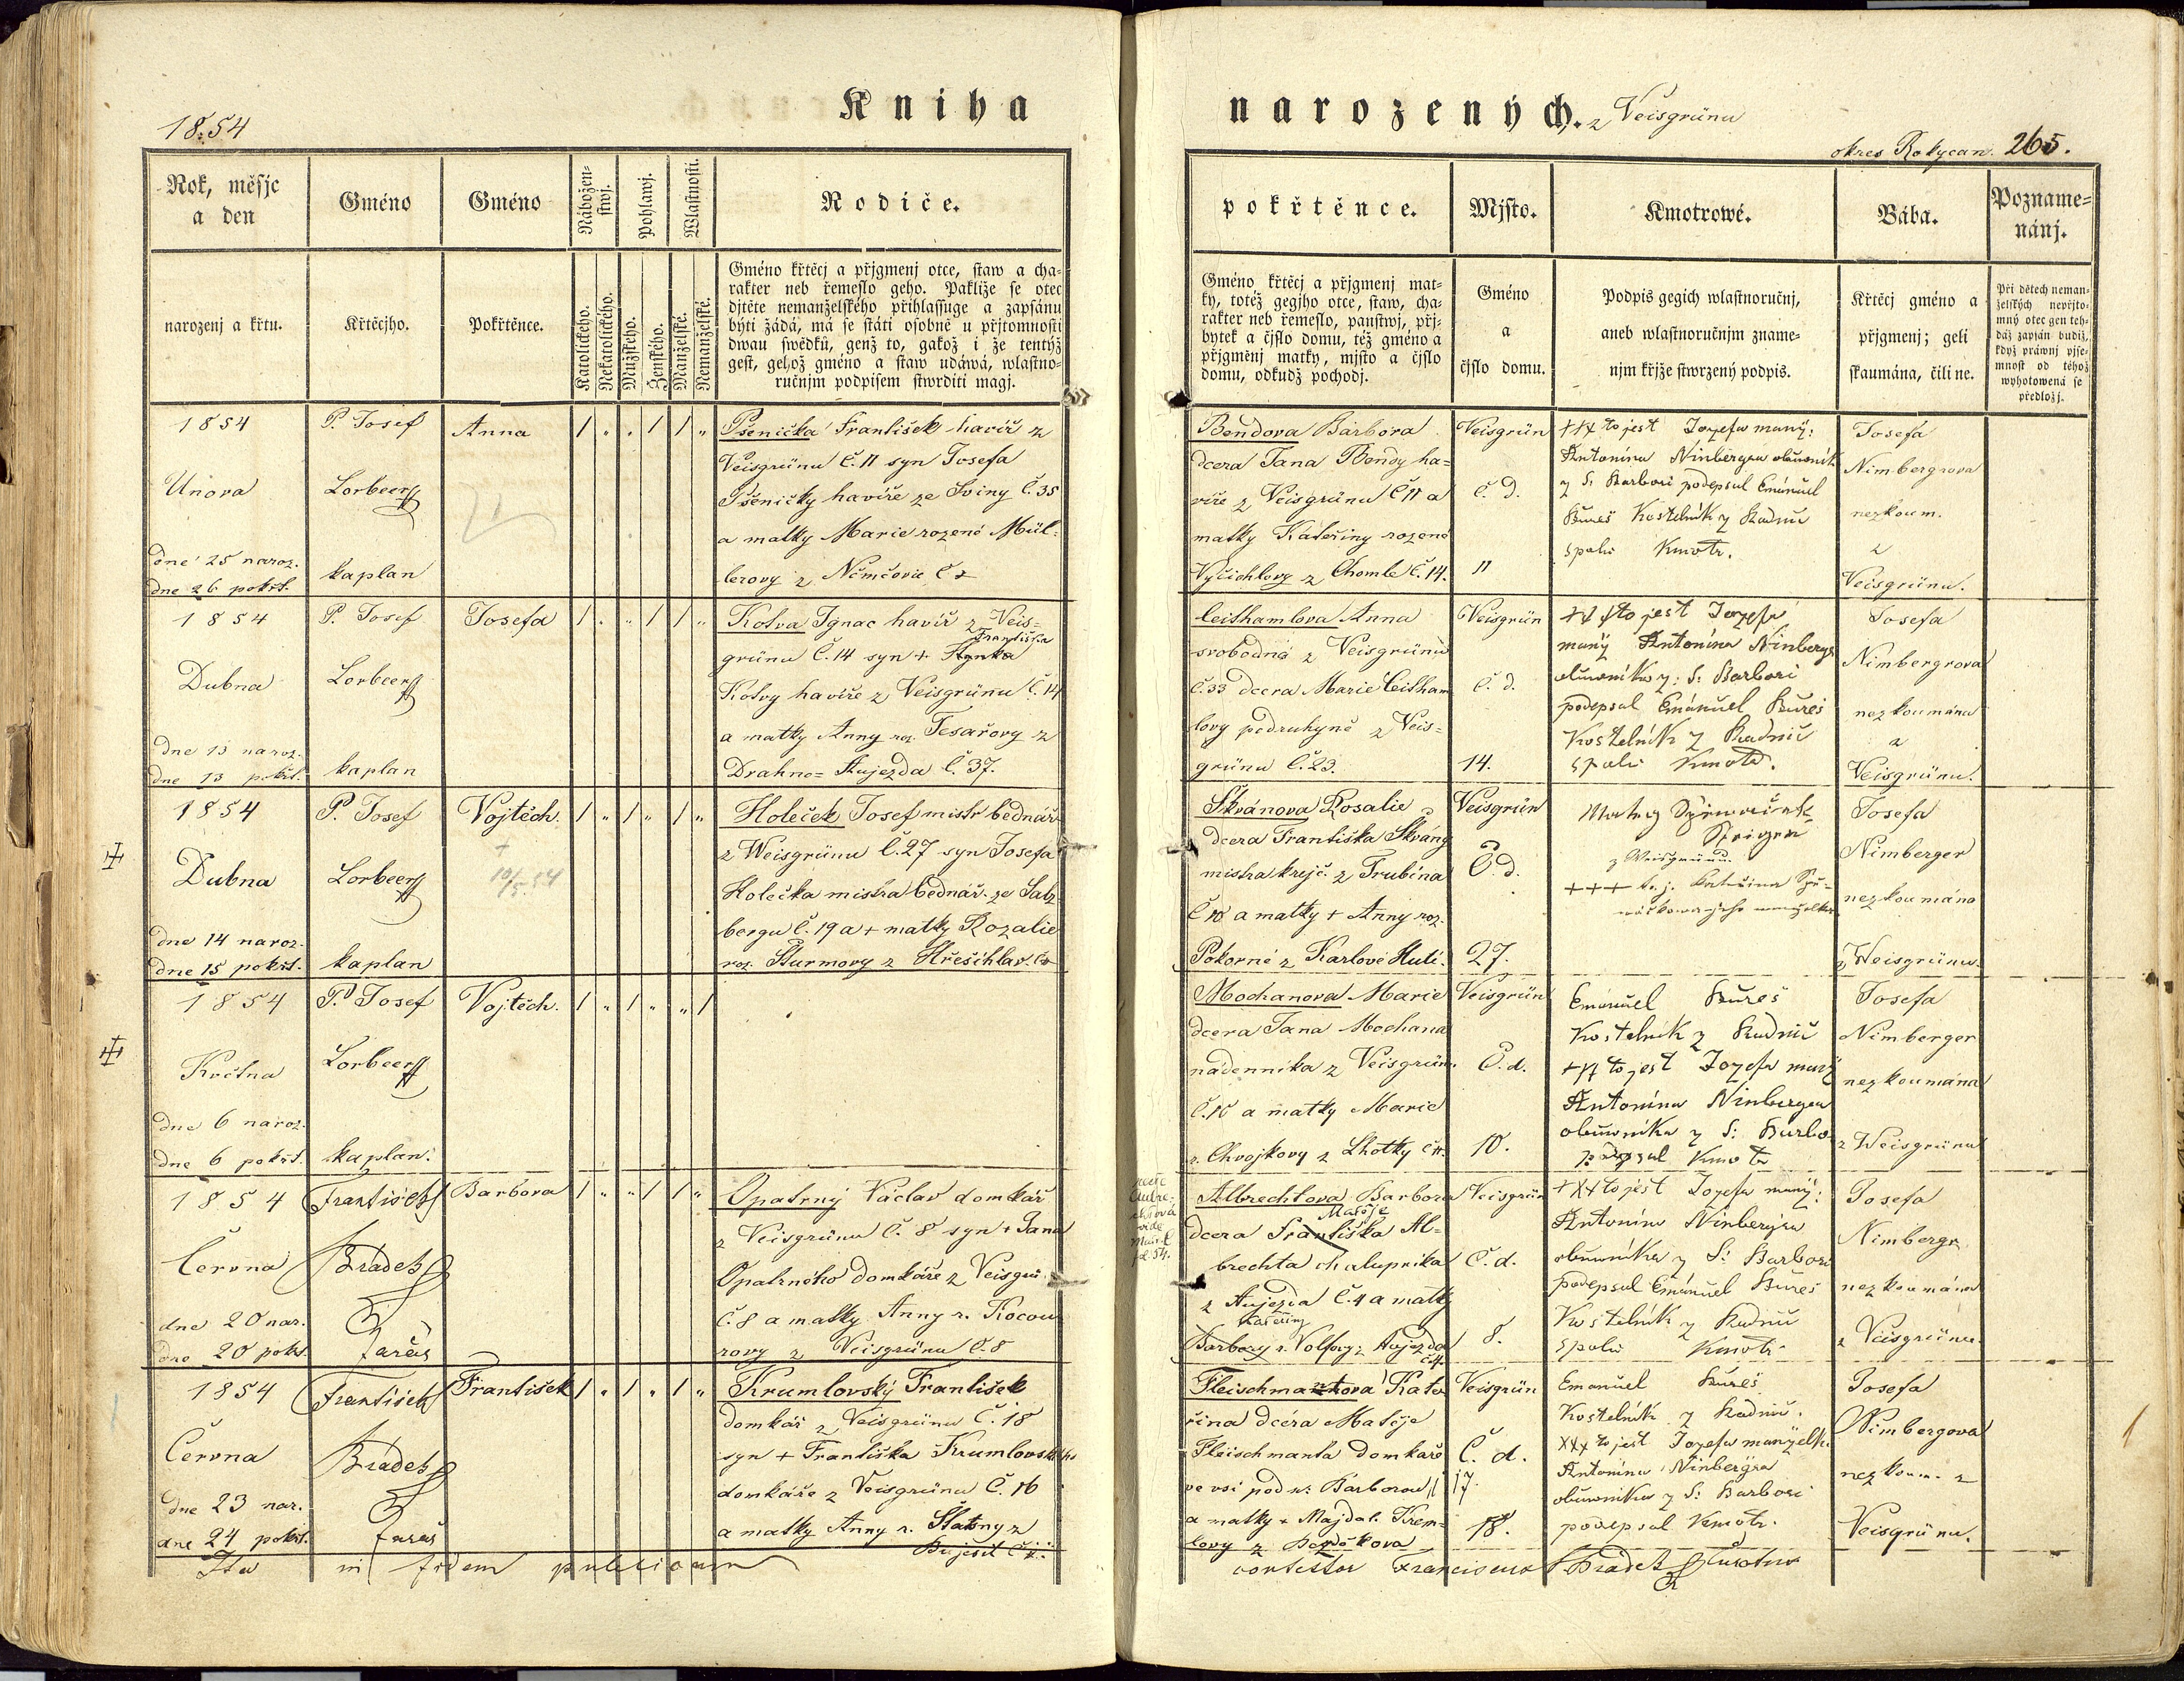 1854
Kniha
narozených.
z Veisgrünu
okres Rokycan. 265.
Rok, měsjc
a den
Gméno
Gméno
Nábožen-
stwj.
Pohlawj.
Wlastnosti.
Rodiče.
pokřtěnce.
Mjsto.
Kmotrowé.
Bába.
Pozname-
nánj.
narozenj a křtu.
Křtěcjho.
Pokřtěnce.
Katolického.
Nekatolického.
Mužského.
Ženského.
Manželské.
Nemanželské.
Gméno křtěcj a přjgmenj otce, staw a cha-
rakter neb řemeslo geho. Pakliže se otec
djtěte nemanželského přihlassuge a zapsánu
býti žádá, má se státi osobně u přjtomnosti
dwau swědků, genž to, gakož i že tentýž
gest, gehož gméno a staw udáwá, wlastno-
ručnjm podpisem stwrditi magj.
Gméno křtěcj a přjgmenj mat-
ky, totéž gegjho otce, staw, cha-
rakter neb řemeslo, panstwj, přj-
bytek a čjslo domu, též gméno a
přjgměnj matky, mjsto a čjslo
domu, odkudž pochodj.
Gméno
a
čjslo domu.
Podpis gegich wlastnoručnj,
aneb wlastnoručnjm zname-
njm křjže stwrzený podpis.
Křtěcj gméno a
přjgmenj; geli
skaumána, čili ne.
Při dětech neman-
želských nepřjto-
mný otec gen teh-
dáž zapsán budiž,
když práwnj pjse-
mnost od téhož
wyhotowená se
předložj.
1854
Unora
dne 25 naroz.
dne 26 pokřt.
P. Josef
Lorbeer
kaplan
Anna
Pšenička František havíř z
Veisgrünu č. 11 syn Josefa
Pšeničky havíře ze Sviny č. 35
a matky Marie rozené Mül-
lerovy z Němčovic č
Bendova Barbora
dcera Jana Bendy ha-
víře z Veisgrünu č 11 a
matky Kateřiny rozené
Vyčichlovy z Chomle č. 14.
Veisgrün
č. d.
11
+++ to jest Jozefa manž:
Antonína Ninbergra obuvník
z S: Barbori podepsal Emánuel
Bureš Kostelník z Radnic
spolu Kmotr.
Josefa
Nimbergrova
nezkoum.
z
Veisgrünu.
1854
Dubna
dne 13 naroz.
dne 13 pokřt.
P. Josef
Lorbeer
kaplan
Josefa
Kotva Ignac havíř z Veis-
Františka
grünu č. 14 syn +
Kotvy havíře z Veisgrünu č. 14
a matky Anny roz. Tesařovy z
Drahno- Aujezda č. 37.
Leithamlova Anna
svobodná z Veisgrünu
č. 33 dcera Marie Leitham
lovy podruhyně z Veis-
grünu č. 23.
Veisgrün
č. d.
14.
+++ to jest Jozefa
manž Antonína Ninbergr
obuvníka z: S: Barbori
podepsal Emánuel Bureš
Kostelník z Radnic
spolu Kmotr.
Josefa
Nimbergrova
nezkoumána
z
Veisgrünu.
1854
Dubna
dne 14 naroz.
dne 15 pokřt.
P. Josef
Lorbeer
kaplan
Vojtěch.
+
10/5.54
Holeček Josef mistr bednář
z Weisgrünu č. 27 syn Josefa
Holečka mistra bednář. ze Salz
bergu č. 19 a + matky Rozalie
roz. Šturmovy z Hřešihlav. č
Škvánova Rosalie
dcera Františka Škvány
mistra krejč. z Trubína
č 10 a matky + Anny roz.
Pokorné z Karlové Huti.
Veisgrün
Č. d.
27.
z Weisgrünu
+++ t. j. Kateřina
Josefa
Nimberger
nezkoumána
z Weisgrünu.
1854
Května
dne 6 naroz.
dne 6 pokřt.
P. Josef
Lorbeer
kaplan.
Vojtěch.
Mochanova Marie
dcera Jana Mochana
nádenníka z Veisgrün.
č. 10 a matky Marie
r. Chvojkovy z Lhotky č
Veisgrün
Č. d.
10.
Emánuel Bureš
Kostelník z Radnic
+++ to jest Jozefa manž
Antonína Ninbergra
obuvníka z S: Barbo
podepsal Kmotr
Josefa
Nimberger
nezkoumána
z Weisgrünu
1854
Června
dne 20 nar.
dne 20 pokř.
František
Hradetz
farář
Barbora
Opatrný Václav domkář
z Veisgrünu č. 8 syn + Jana
Opatrného domkáře z Veisgrü
č. 8 a matky Anny r. Kocou
rovy z Veisgrünu č. 8
Albrechtova Barbora
Matěje
dcera Františka Al-
brechta chalupníka
z Aujezda č. 4 a matky
Kateřiny
Barbory r. Volfovy z Aujezda
č 4.
Veisgrün
č. d.
8.
+++ to jest Jozefa manž:
Antonína Ninbergra
obuvníka z S: Barbori
podepsal Emánuel Bureš
Kostelník z Radnic
spolu Kmotr
Josefa
Nimbergr
nezkoumána
z Veisgrünu.
1854
Června
dne 23 nar.
dne 24 pokřt.
František
Hradetz
farář
František
Krumlovský František
domkář z Veisgrünu č. 18
syn + Františka Krumlovského
domkáře z Veisgrünu č. 16
a matky Anny r. Šlatny z
Bujesil č
Fleischmantova Kate
řina dcéra Matěje
Fleischmanta domkáře
ve vsi pod sv. Barborou 17
a matky + Majdal. Krem-
lovy z
Veisgrün
Č. d.
18.
Emanuel Bureš
Kostelník z Radnic.
+++ to jest Jozefa manželk.
Antonína Ninbergra
obuvníka z S: Barbori
podepsal Kmotr.
Josefa
Nimbergova
nezkoum. z
Veisgrünu.
Ita in fidem publicam
contestor Franciscus Hradetz Curatus